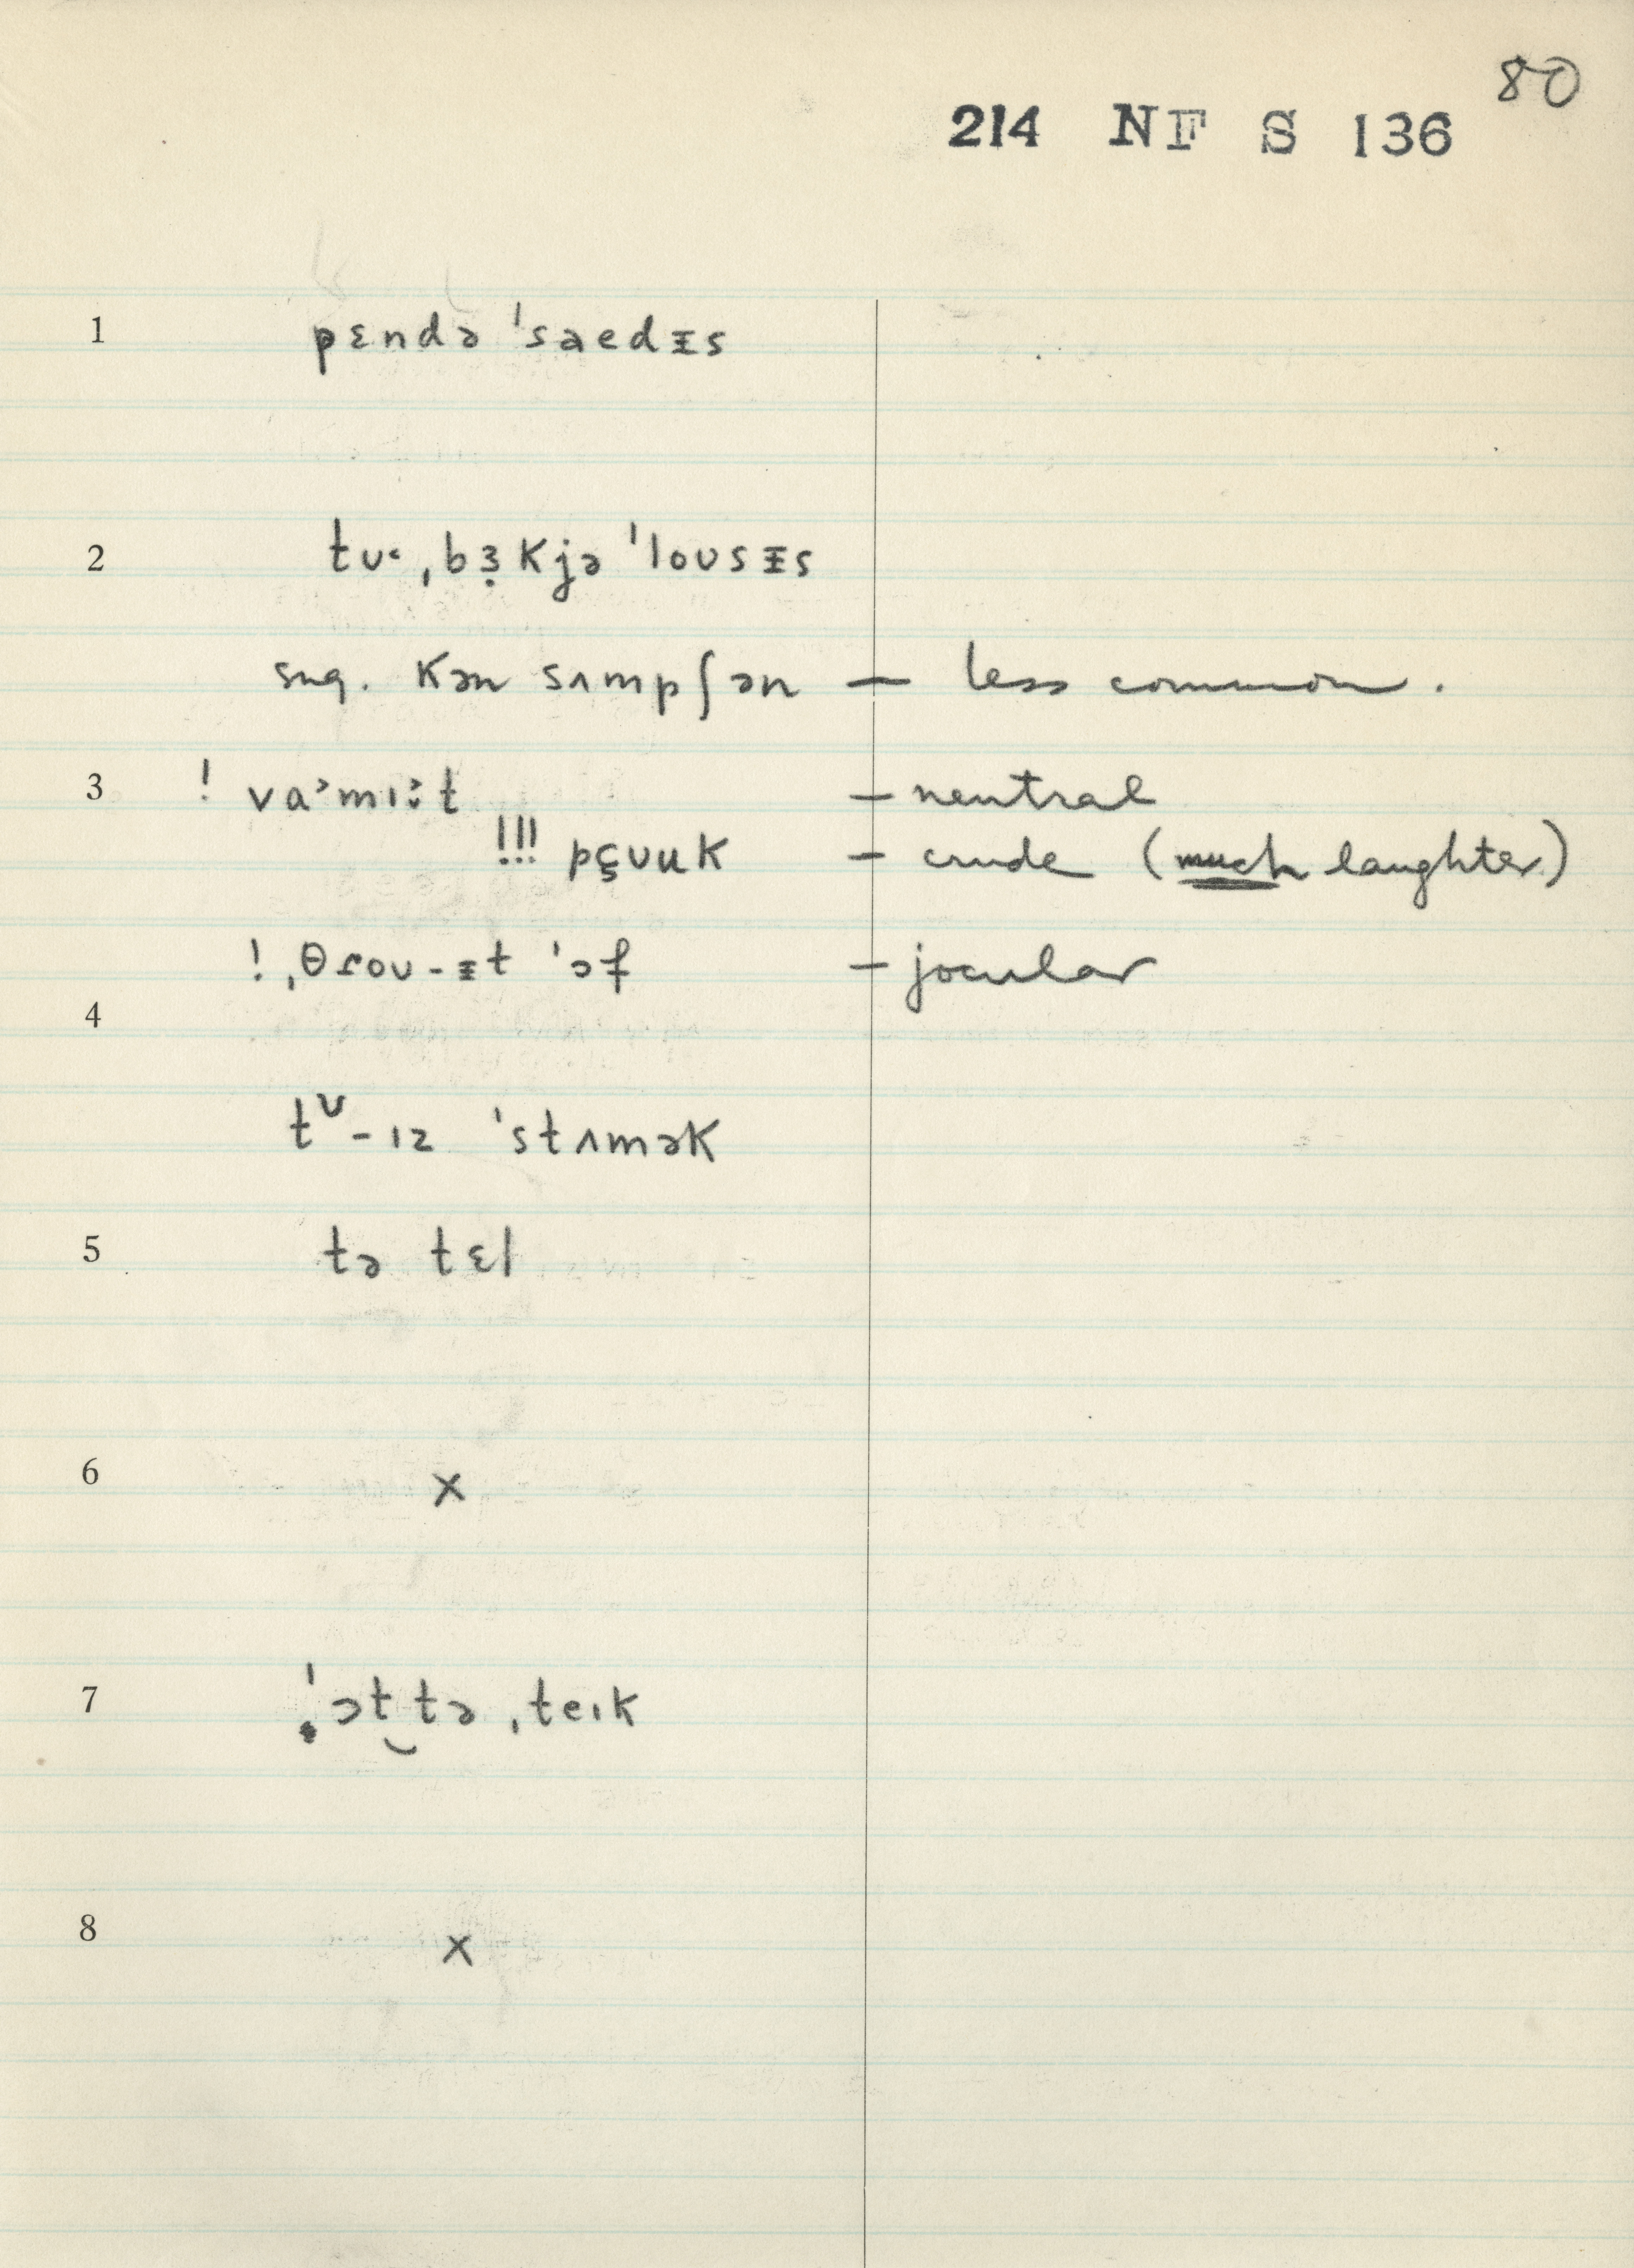 80
214 NF S 136
1 pɛndə ˈsaedᵻs
2 tʊ˂ ˌbɜ̣kjə ˈloʊsᵻs
sug. kən sʌmpʃən — less common.
3 ! va˃mɪ˃ːt — neutral
!!! pçʊuk — crude (much laughter)
! ˌθɾoʊ-ᵻt ˈɔf — jocular
4
tᶷ-ɪz ˈstʌmək
5 tə tɛl
6 x
7 ˈɔt‿tə ˌteɪk
8 x